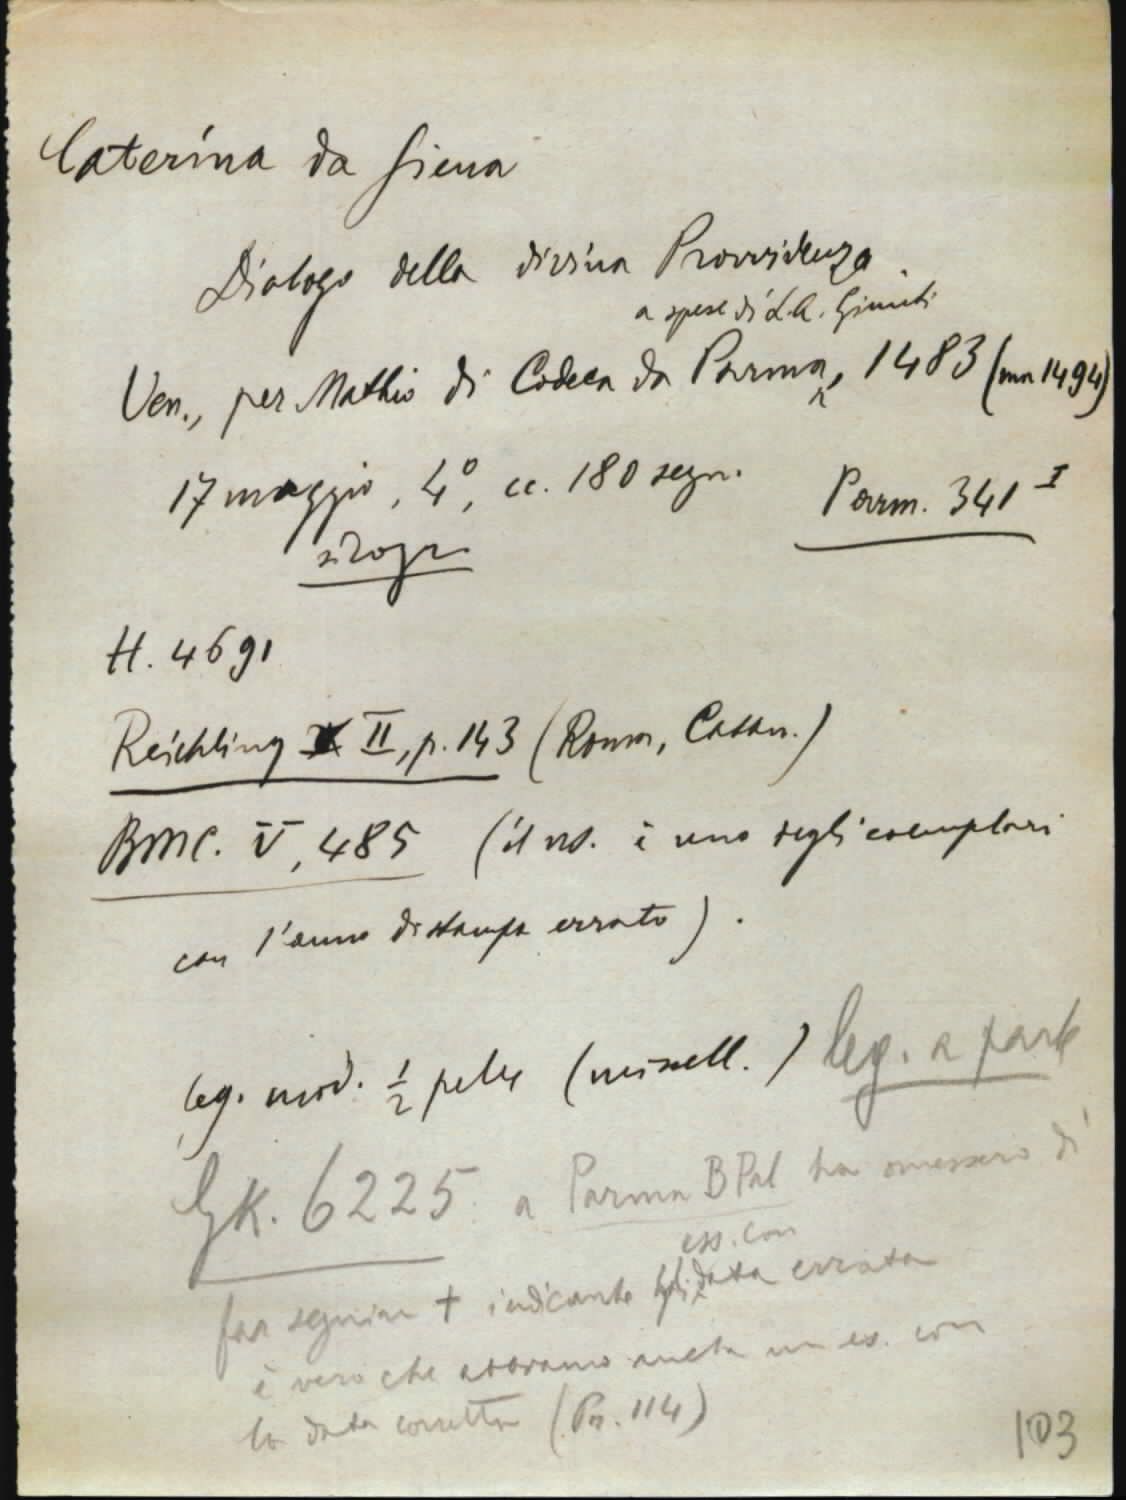 Caterina da Siena
Dialogo della divina Provvidenza.
a spese di L.A. Giunti
Ven., per Mathio di Codeca da Parma, 1483 (ma 1494)
17 maggio, 4°, cc. 180 segn.
silogr.
Parm. 341 I
H. 4691
Reichling II, p. 143 (Roma, Casan.)
BMC. V, 485 (il ns. è uno degli esemplari
con l'anno di stampa errato).
leg. mod. 1/2 pelle (miscell.) leg. a parte
GK. 6225. a Parma BPal ha omesso di
ess. con
far seguire + indicante gli data errata
è vero che abbiamo anche un es. con
la data corretta (Pr. 114)
103